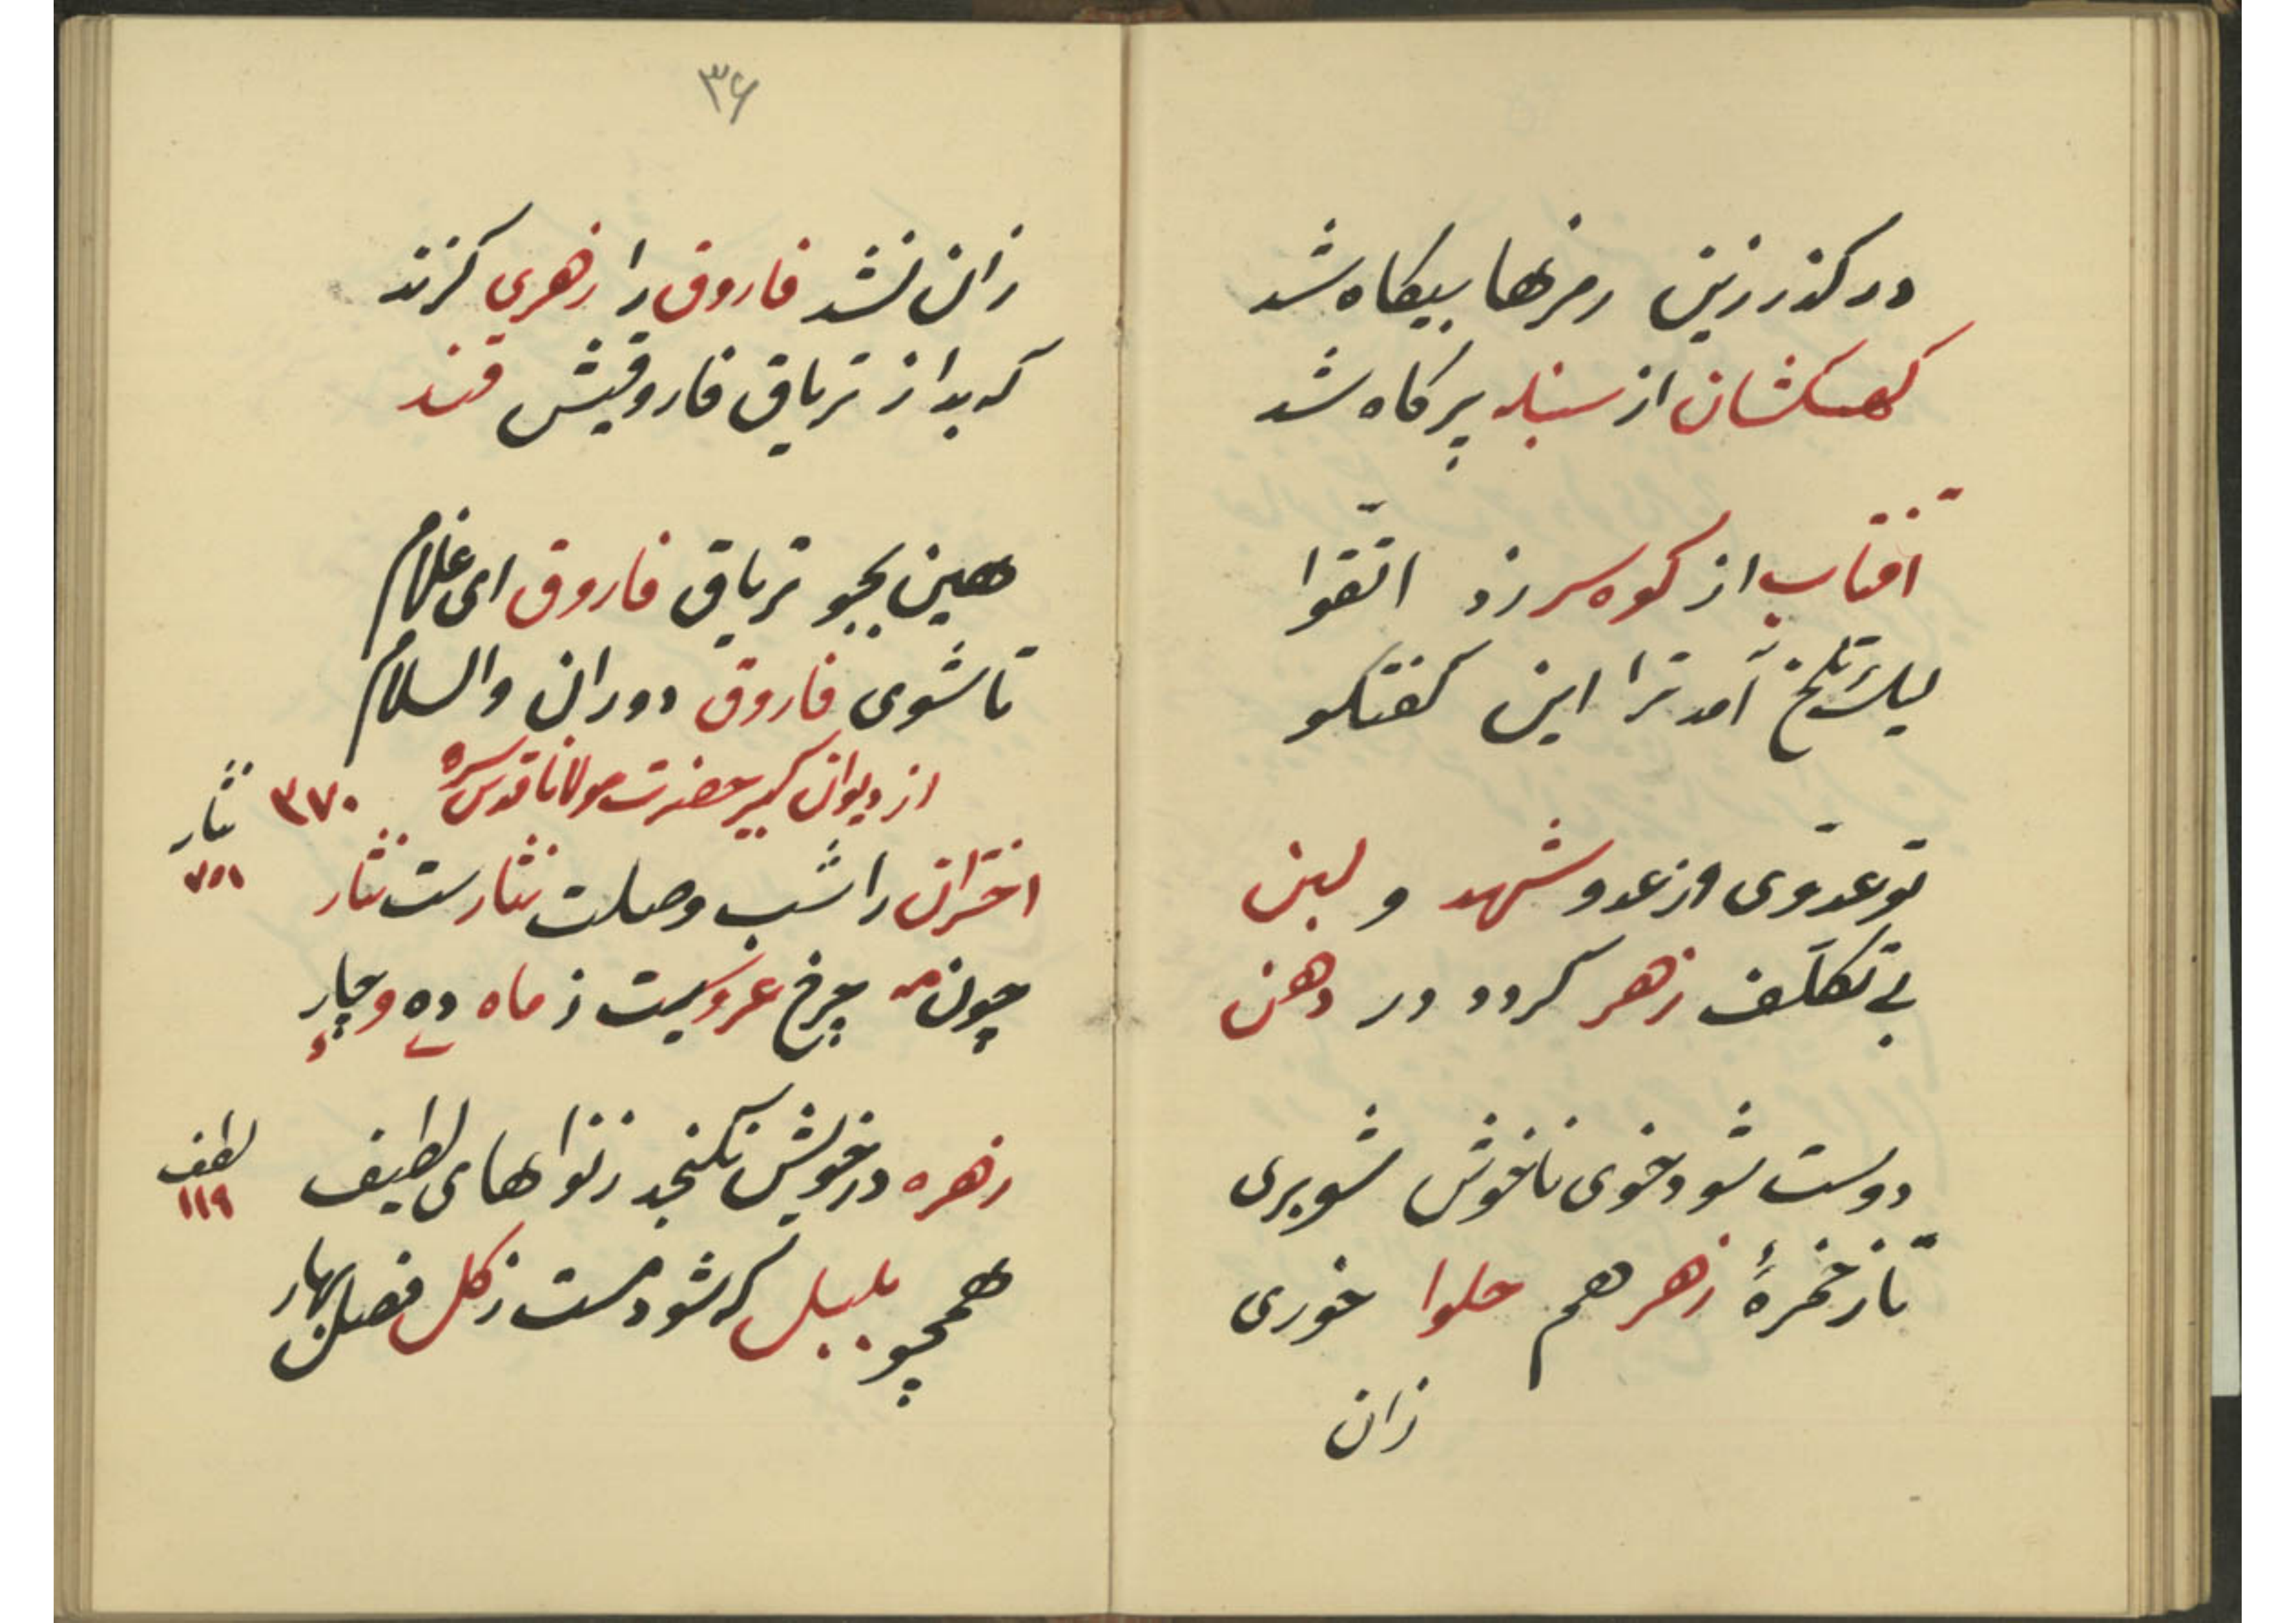 در گذر زین رمزها بیگاه شد
کهکشان از سنبله پر کاه شد
آفتاب از کوه سر زد اتّقوا
لیک تلخ آمد ترا این گفتگو
تو عدّوی وز عدو شهد و لبن
بی تکلّف زهر گردد در دهن
دوست شو وز خوی ناخوش شو بری
تا ز خمرهٔ زهر هم حلوا خوری
زان
۳۶
زان نشد فاروق را زهری گزند
که بد از تریاق فاروقیش قند
هین بجو تریاق فاروق ای غلام
تا شوی فاروق دوران والسلام
از دیوان کبیر حضرت مولانا قدس سره ۳۷۰
اختران را شب وصلت نثارست نثار
نثار
۷۵۱
چون مه چرخ عروسیت ز ماه ده و چار
زهره در خویش نگنجد ز نواهای لطیف
لطف
۱۱۹
همچو بلبل که شود مست ز گل فصل بهار